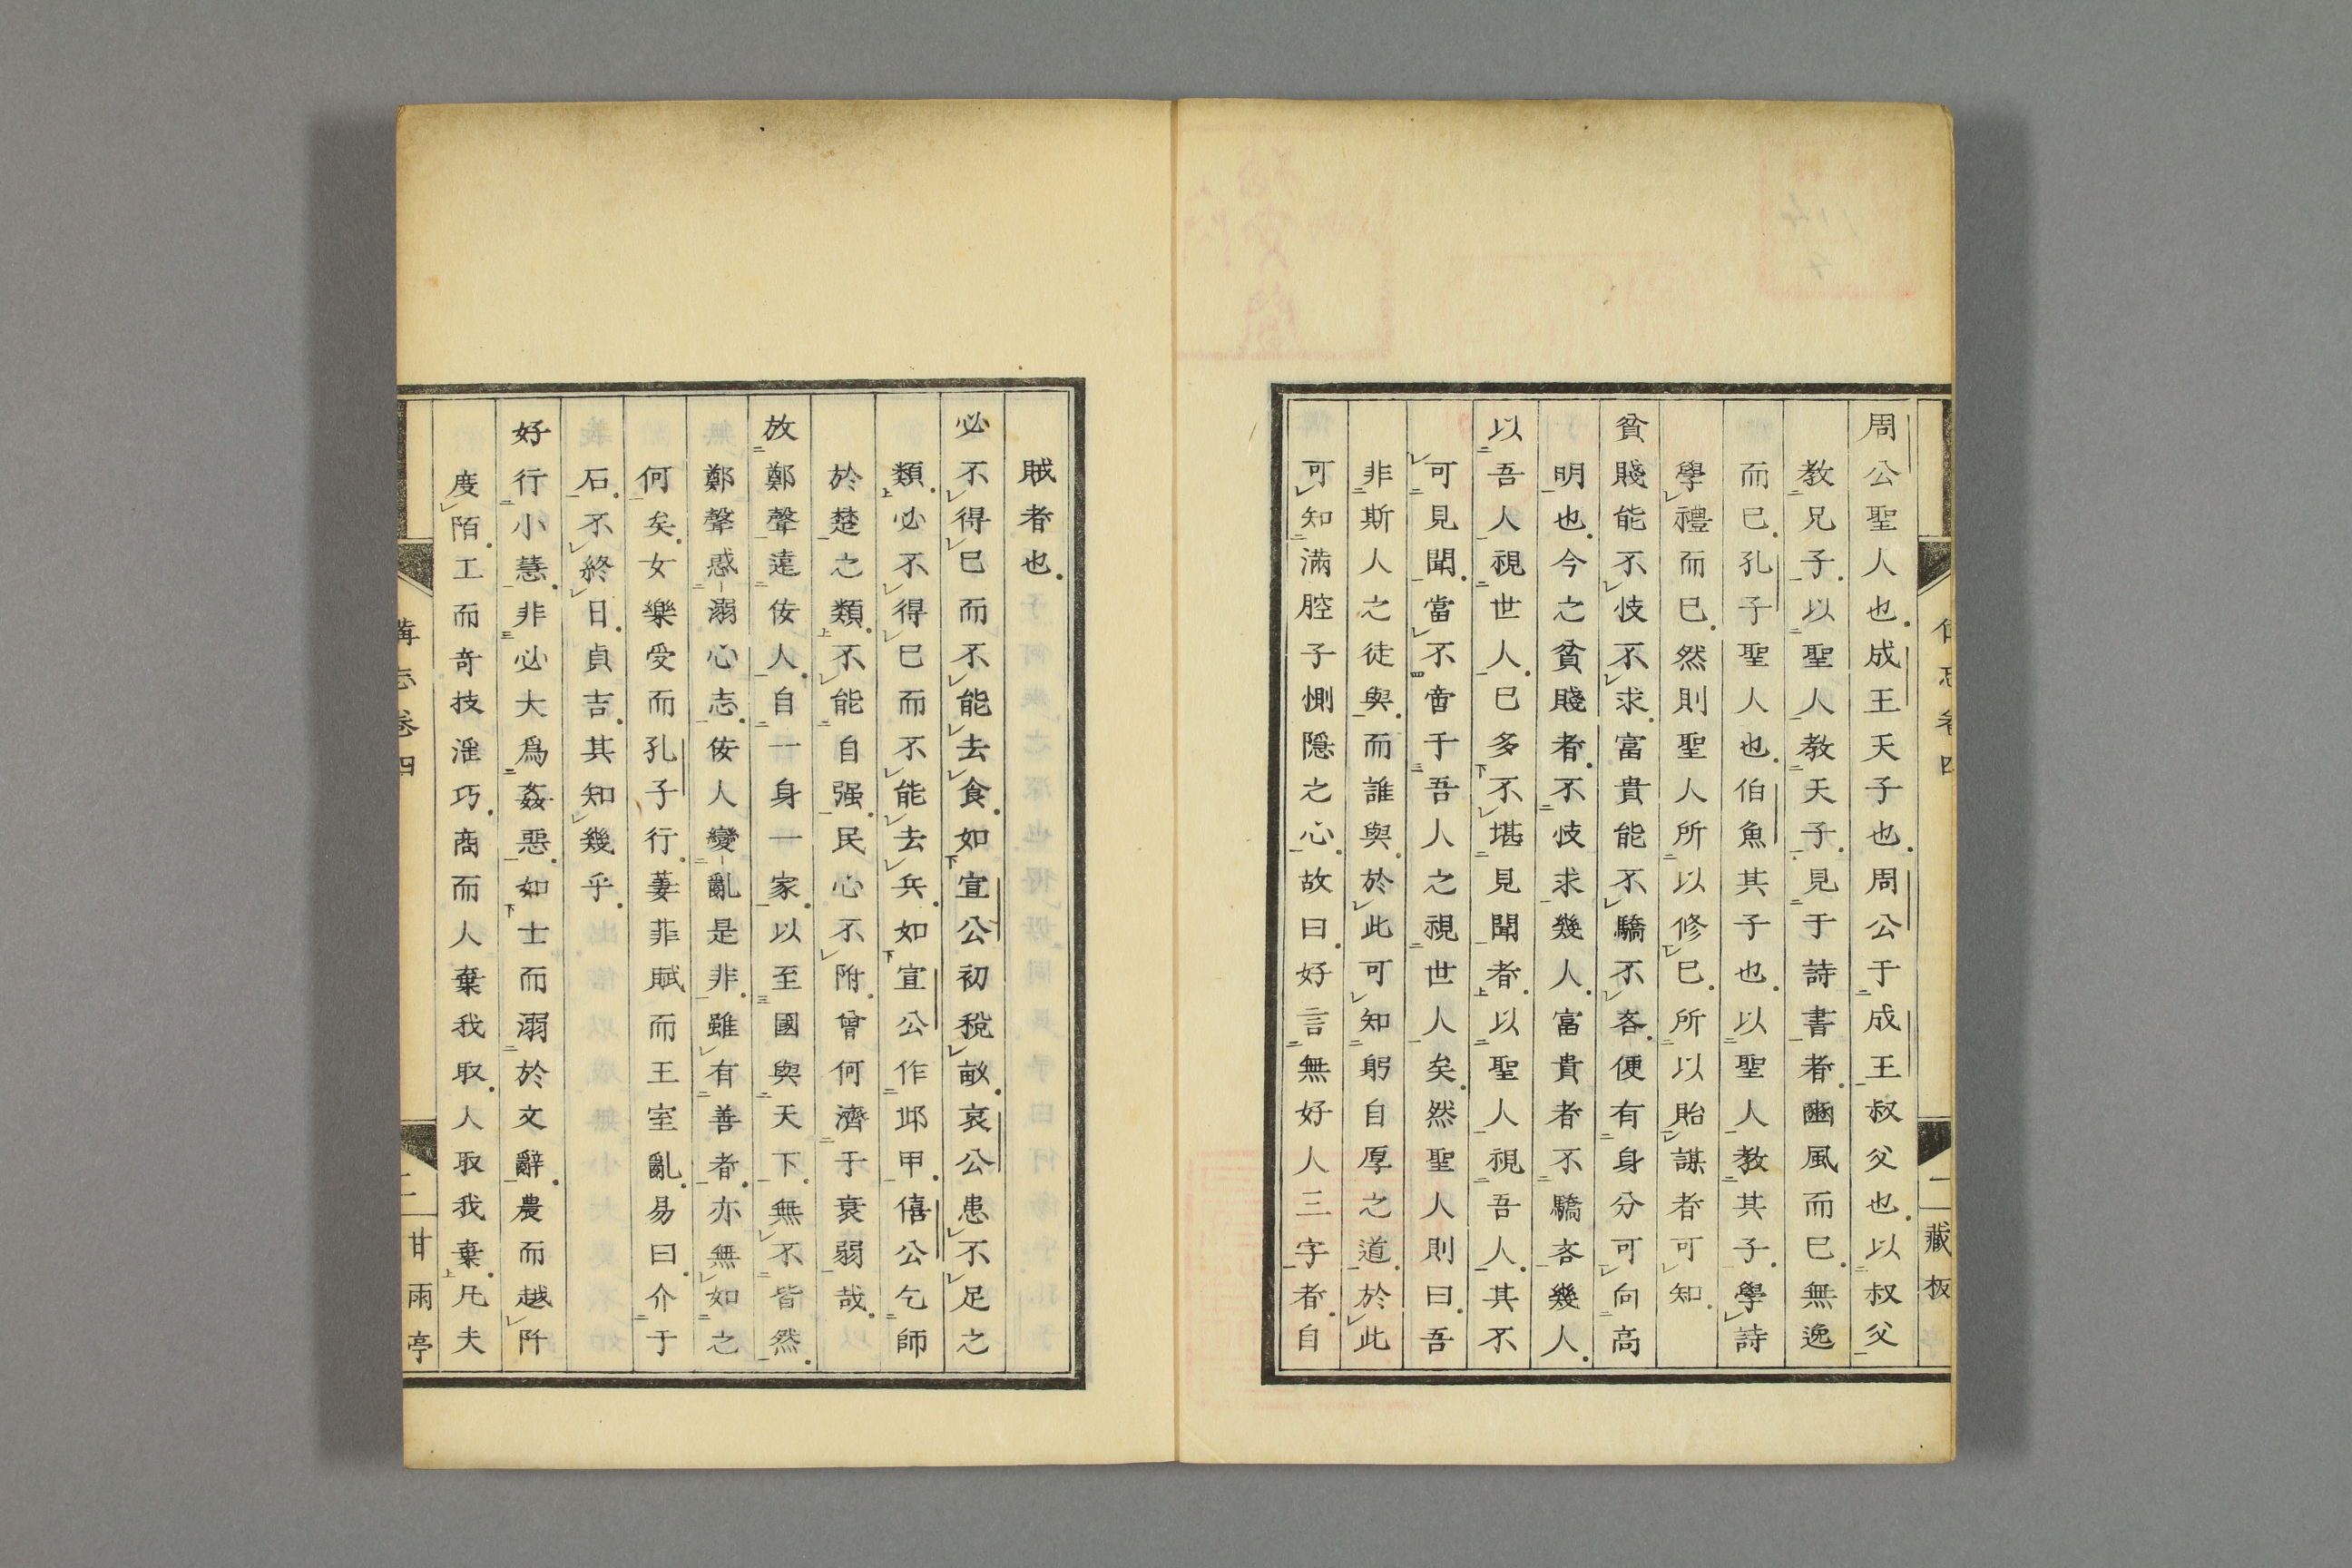 周公聖人也成王天子也周公于成王叔父也以叔父
教兄子以聖人教天子見于詩書者豳風而已無逸
而已孔子聖人也伯魚其子也以聖人教其子學詩
學禮而已然則聖人所以修已所以貽謀者可知
貧賤能不忮不求富貴能不驕不吝便有身分可向高
明也今之貧賤者不忮求幾人富貴者不驕吝幾人
以吾人視世人已多不堪見聞者以聖人視吾人其不
可見聞當不啻于吾人之視世人矣然聖人則曰吾
非斯人之徒與而誰與於此可知躬自厚之道於此
可知滿腔子惻隱之心故曰好言無好人三字者自
藏板
賊者也
必不得已而不能去食如宣公初稅畝哀公患不足之
類必不得已而不能去兵如宣公作邱甲僖公乞師
於楚之類不能自强民心不附曾何濟于衰弱哉
放鄭聲遠佞人自一身一家以至國與天下無不皆然
鄭聲惑溺心志佞人變亂是非雖有善者亦無如之
何矣女樂受而孔子行萋菲賦而王室亂易曰介于
石不終日貞吉其知幾乎
好行小慧非必大爲姦惡如士而溺於文辭農而越阡
度陌工而奇技淫巧商而人棄我取人取我棄凡夫
卷四
甘雨亭